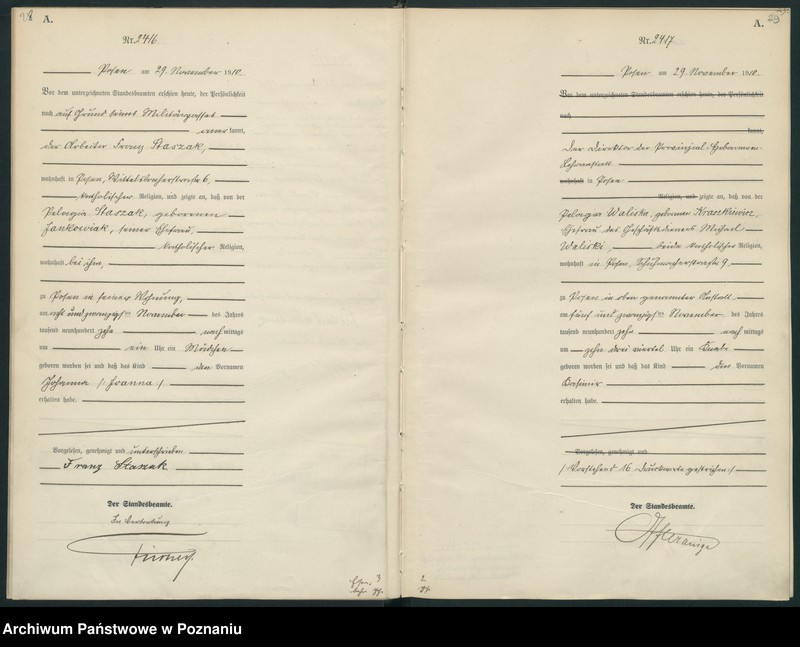 28
A.
Nr. 2416
Posen am 29. November 1910.
Vor dem unterzeichneten Standesbeamten erschien heute, der Persönlichkeit
nach auf Grund seines Militärpasses
anerkannt,
der Arbeiter Franz Staszak,
wohnhaft in Posen, Wittelsbacherstraße 6,
katholischer Religion, und zeigte an, daß von der
Pelagia Staszak, geborenen
Jankowiak, seiner Ehefrau,
katholischer Religion,
wohnhaft bei ihm,
zu Posen in seiner Wohnung,
am acht und zwanzigsten November des Jahres
tausend neunhundert zehn nachmittags
um ein Uhr ein Mädchen
geboren worden sei und daß das Kind den Vornamen
Johanna /: Joanna :/
erhalten habe.
Vorgelesen, genehmigt und unterschrieben
Franz Staszak
Der Standesbeamte.
In Vertretung
A.
29
Nr. 2417
Posen am 29. November 1910.
Vor dem unterzeichneten Standesbeamten erschien heute, der Persönlichkeit
nach
kannt,
Der Direktor der Provinzial-Hebammen-
Lehranstalt
wohnhaft in Posen
Religion, und zeigte an, daß von der
Pelagia Waliska, geborenen Kraszkiewicz,
Ehefrau des Geschäftsdieners Michael
Waliski, beide katholischer Religion,
wohnhaft in Posen, Schuhmacherstraße 9
zu Posen in oben genannter Anstalt
am fünf und zwanzigsten November des Jahres
tausend neunhundert zehn nachmittags
um zehn drei viertel Uhr ein Knabe
geboren worden sei und daß das Kind den Vornamen
Kasimir
erhalten habe.
Vorgelesen, genehmigt und
/: Vorstehend 16 Druckworte gestrichen :/
Der Standesbeamte.
3
2
Archiwum Państwowe w Poznaniu